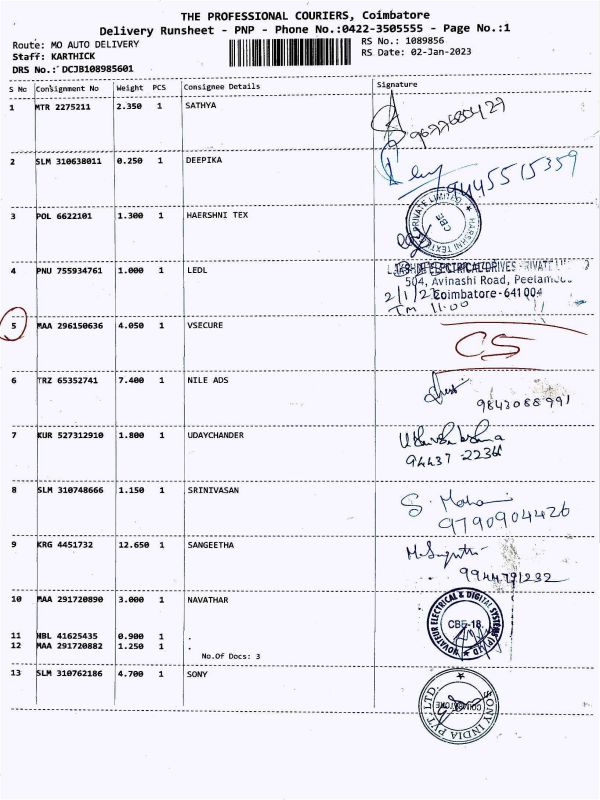 THE PROFESSIONAL COURIERS, Coimbatore
Delivery Runsheet - PNP - Phone No.:0422-3505555 - Page No.:1
Route: MO AUTO DELIVERY
RS No.: 1089856
Staff: KARTHICK
RS Date: 02-Jan-2023
DRS No.: DCJB108985601
S No Consignment No Weight PCS Consignee Details Signature
1 MTR 2275211 2.350 1 SATHYA
9677680427
2 SLM 310638011 0.250 1 DEEPIKA
9445515359
3 POL 6622101 1.300 1 HAERSHNI TEX
PRIVATE LIMITED ★ HARSHNI TEXT
CBE
4 PNU 755934761 1.000 1 LEDL
ELECTRICAL DRIVES
504, Avinashi Road,
2/1/23 Coimbatore - 641 004
TM 11.00
5 MAA 296150636 4.050 1 VSECURE
CS
6 TRZ 65352741 7.400 1 NILE ADS
9843088991
7 KUR 527312910 1.800 1 UDAYCHANDER
94437
8 SLM 310748666 1.150 1 SRINIVASAN
S. Mohan
9790904426
9 KRG 4451732 12.650 1 SANGEETHA
9944791232
10 MAA 291720890 3.000 1 NAVATHAR
NOVATEUR ELECTRICAL & DIGITAL SYSTEMS (P) LTD ★
CBE-18.
11 HBL 41625435 0.900 1 .
12 MAA 291720882 1.250 1 .
No.Of Docs: 3
13 SLM 310762186 4.700 1 SONY
SONY INDIA PVT. LTD. ★
COIMBATORE